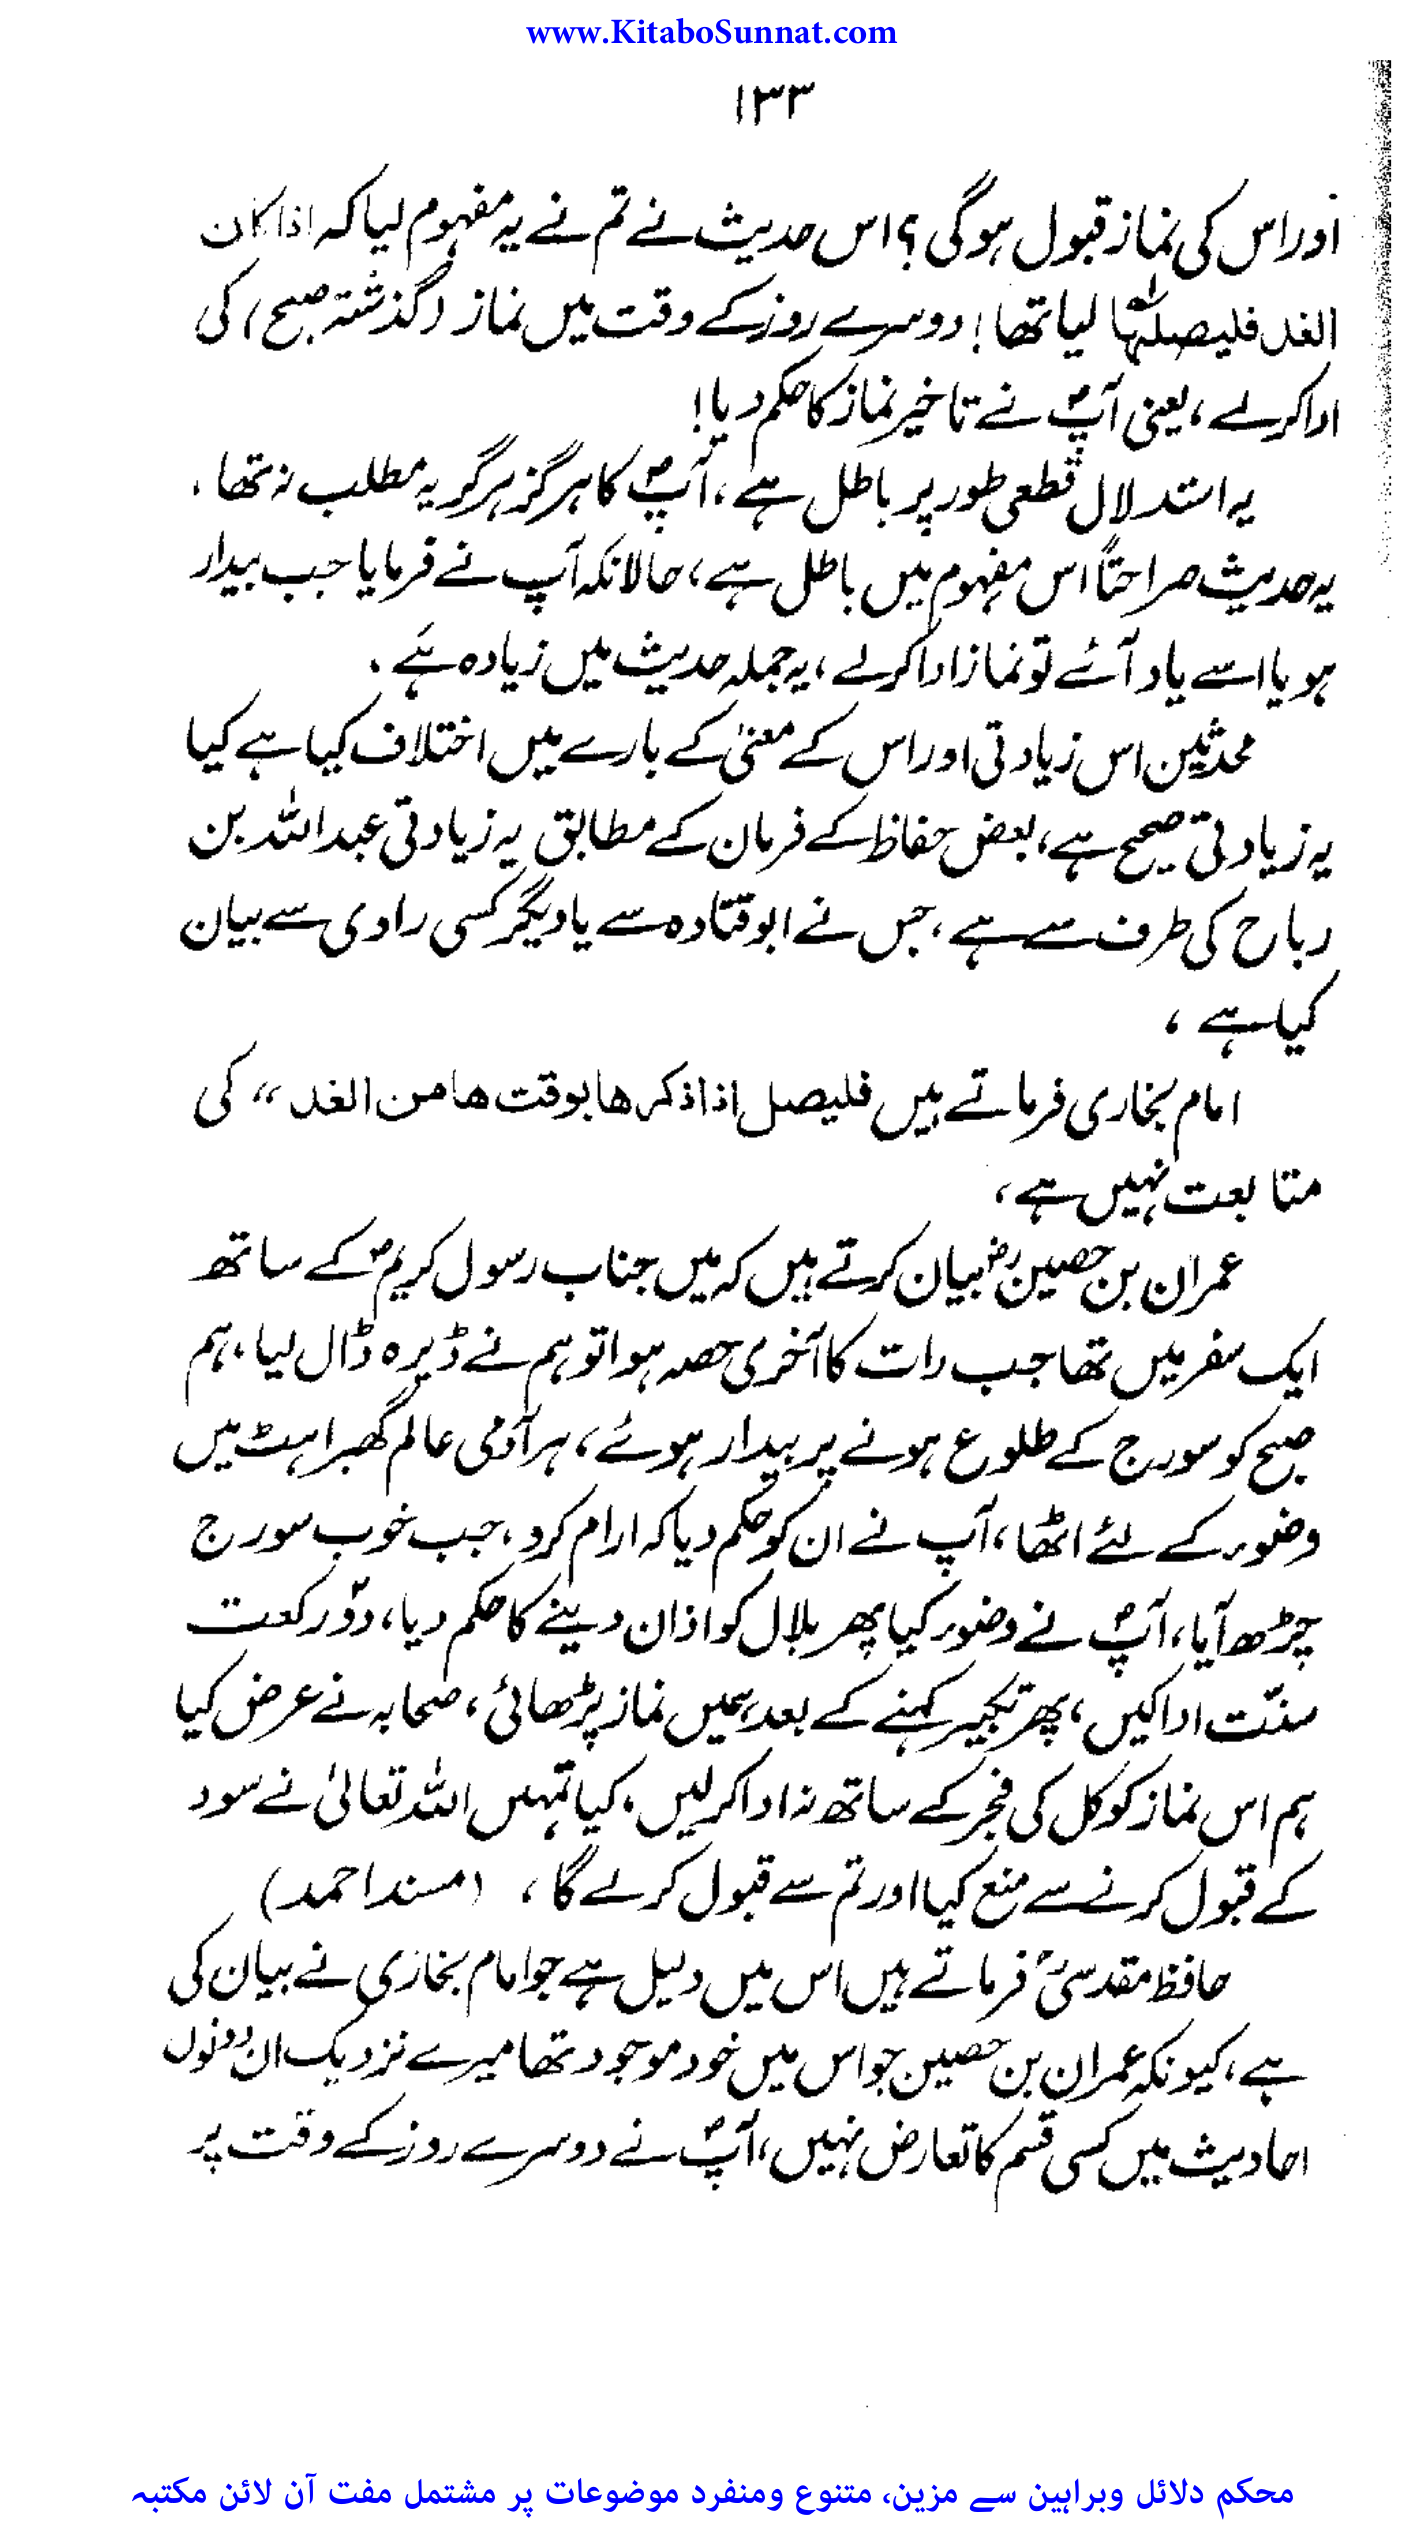 www.KitaboSunnat.com
۱۳۳
اور اس کی نماز قبول ہوگی؟ اس حدیث نے تم نے یہ مفہوم لیا کہ اذا کان
الغد فلیصلہا لیا تھا! دوسرے روز کے وقت میں نماز (گذشتہ صبح) کی
ادا کرلے، یعنی آپؐ نے تاخیر نماز کا حکم دیا!
یہ استدلال قطعی طور پر باطل ہے، آپؐ کا ہرگز ہرگز یہ مطلب نہ تھا۔
یہ حدیث صراحتاً اس مفہوم میں باطل ہے، حالانکہ آپ نے فرمایا جب بیدار
ہو یا اسے یاد آئے تو نماز ادا کرلے، یہ جملہ حدیث میں زیادہ ہے۔
محدثین اس زیادتی اور اس کے معنیٰ کے بارے میں اختلاف کیا ہے کیا
یہ زیادتی صحیح ہے، بعض حفاظ کے فرمان کے مطابق یہ زیادتی عبداللہ بن
رباح کی طرف سے ہے، جس نے ابو قتادہ سے یا دیگر کسی راوی سے بیان
کیا ہے،
امام بخاری فرماتے ہیں فلیصل اذا ذکر ھا بوقت ھا من الغد“ کی
متابعت نہیں ہے،
عمران بن حصینؓ بیان کرتے ہیں کہ میں جناب رسول کریمؐ کے ساتھ
ایک سفر میں تھا جب رات کا آخری حصہ ہوا تو ہم نے ڈیرہ ڈال لیا، ہم
صبح کو سورج کے طلوع ہونے پر بیدار ہوئے، ہر آدمی عالم گھبراہٹ میں
وضور کے لئے اٹھا، آپ نے ان کو حکم دیا کہ ارام کرو، جب خوب سورج
چڑھ آیا، آپؐ نے وضور کیا پھر بلال کو اذان دینے کا حکم دیا، دو رکعت
سنّت ادا کیں، پھر تکبیر کہنے کے بعد ہمیں نماز پڑھائی، صحابہ نے عرض کیا
ہم اس نماز کو کل کی فجر کے ساتھ نہ ادا کرلیں، کیا تمہیں اللہ تعالیٰ نے سود
کے قبول کرنے سے منع کیا اور تم سے قبول کرلے گا، (مسند احمد)
حافظ مقدسیؒ فرماتے ہیں اس میں دلیل ہے جو امام بخاری نے بیان کی
ہے، کیونکہ عمران بن حصین جو اس میں خود موجود تھا میرے نزدیک ان دونوں
احادیث میں کسی قسم کا تعارض نہیں، آپؐ نے دوسرے روز کے وقت پر
محکم دلائل وبراہین سے مزین، متنوع ومنفرد موضوعات پر مشتمل مفت آن لائن مکتبہ